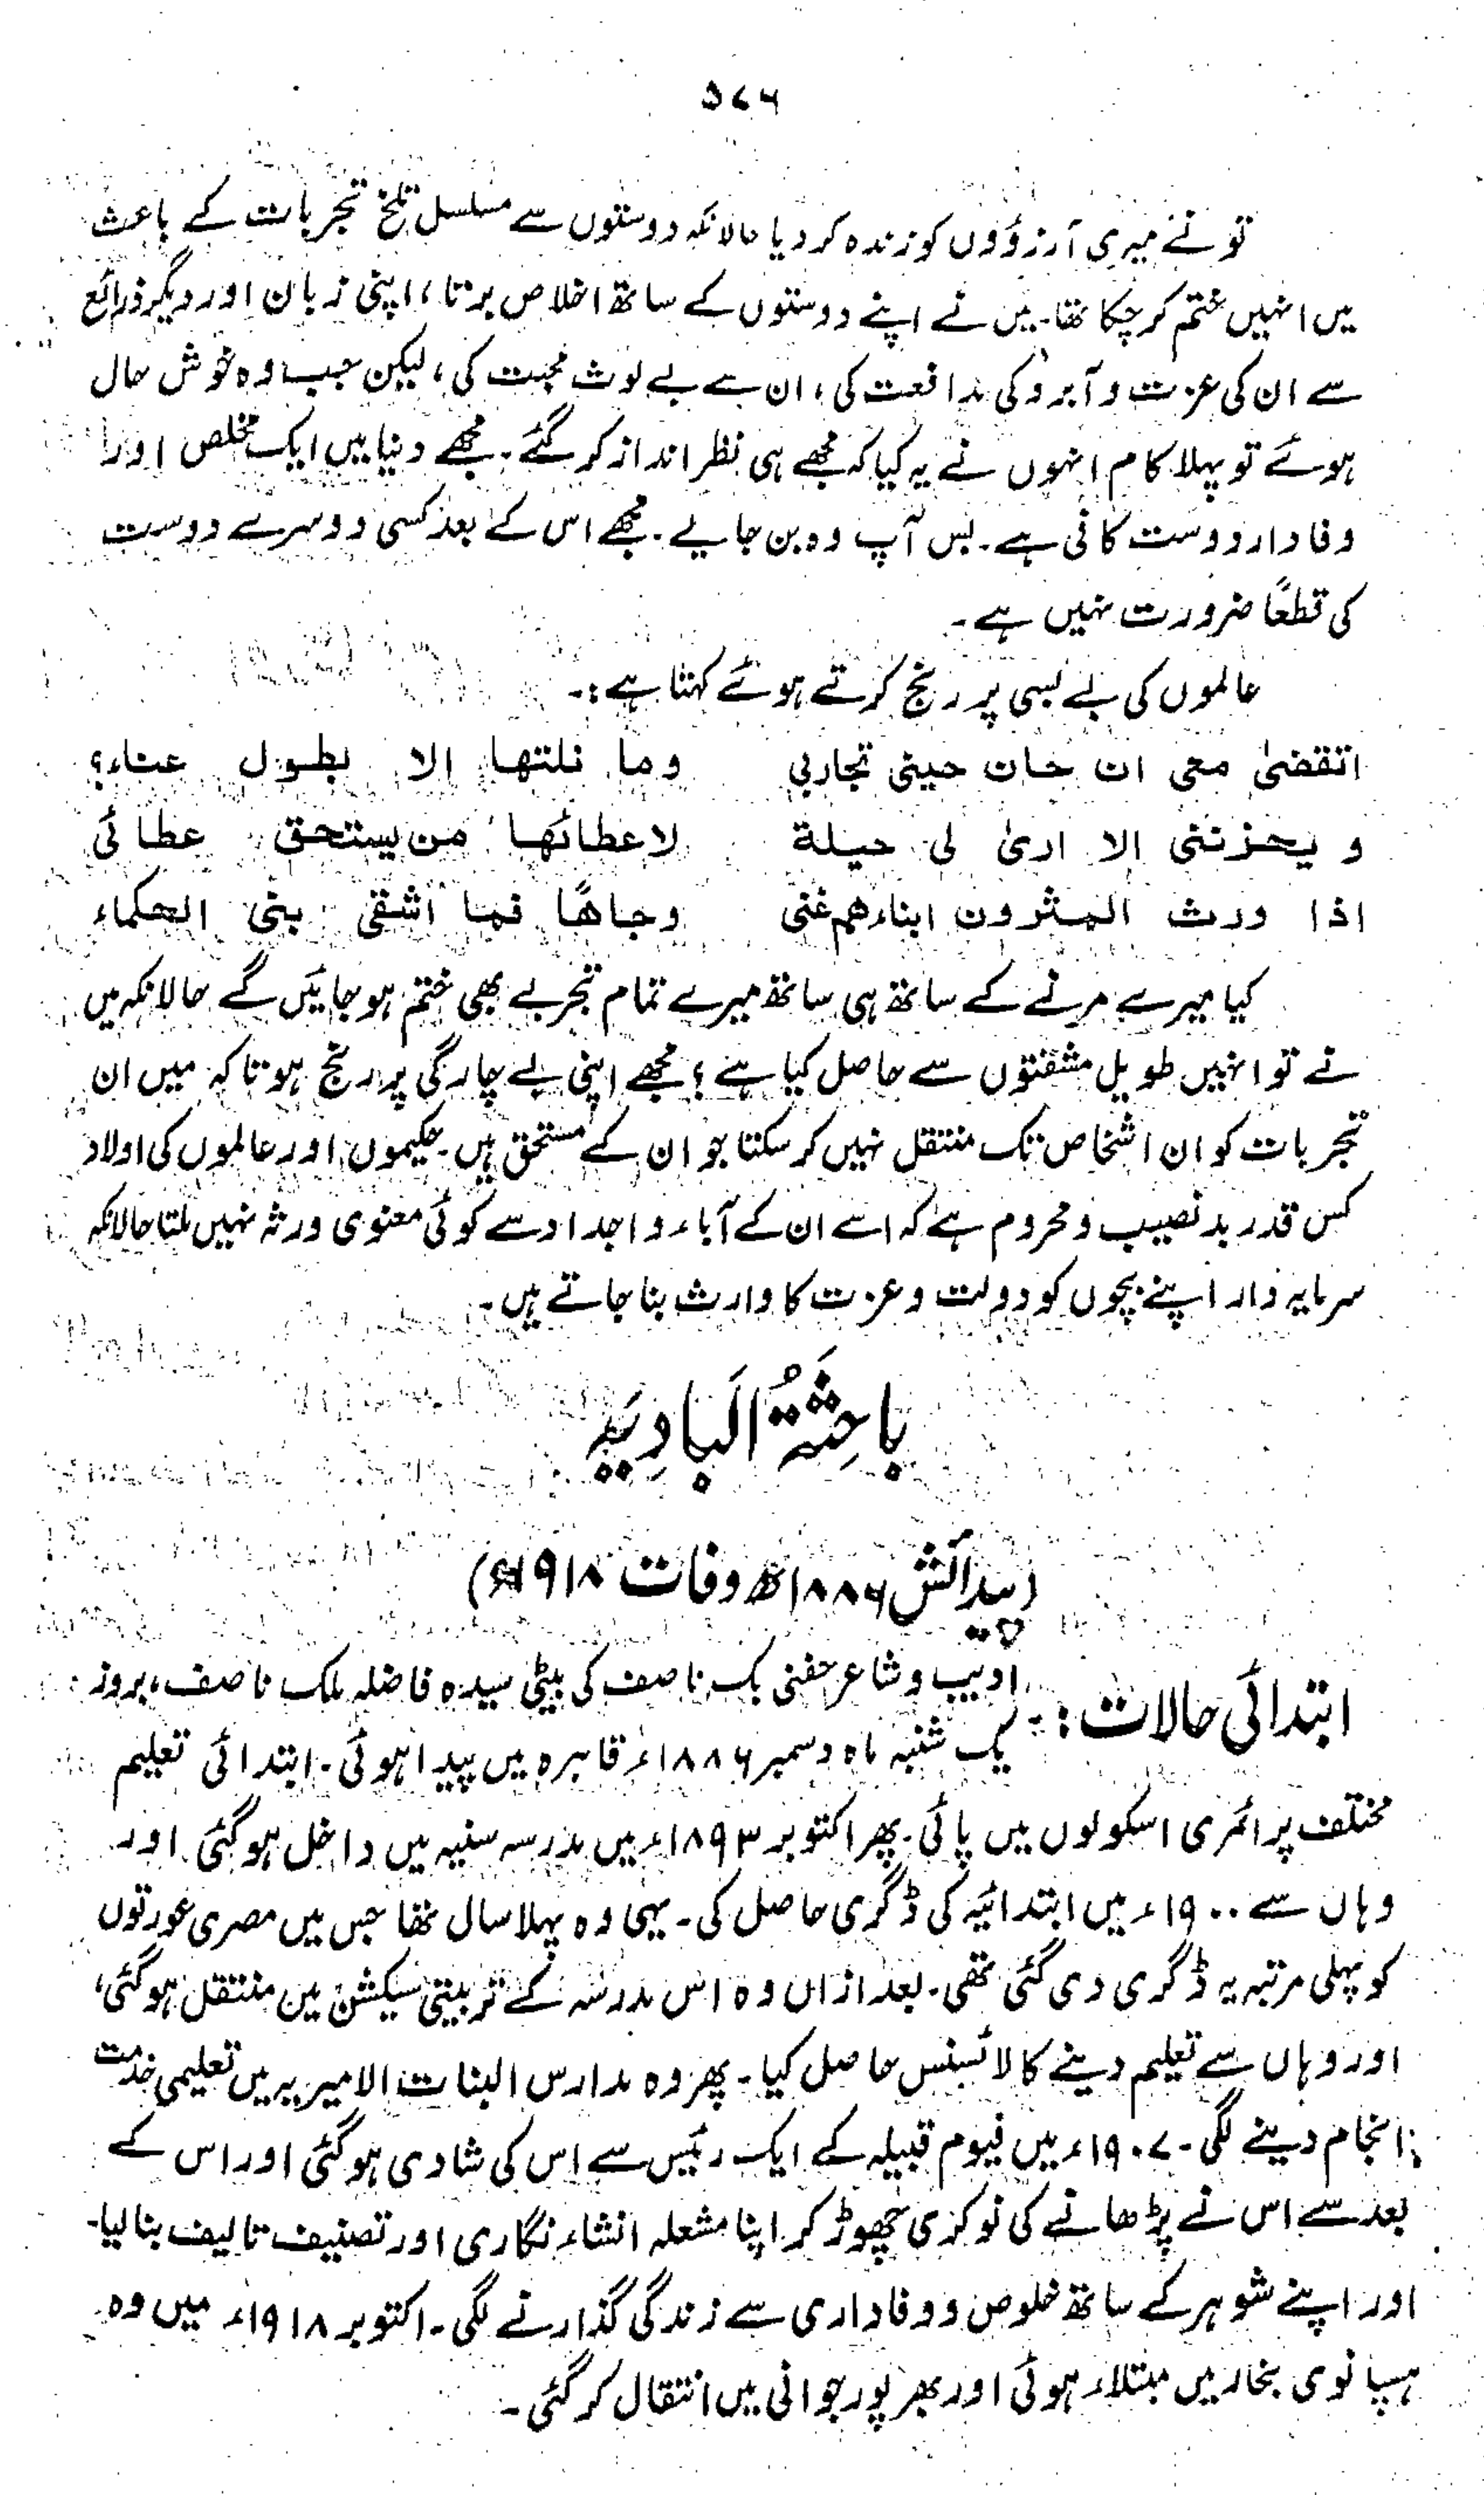 ۵۷۶
تو نے میری آرزوؤں کو زندہ کر دیا حالانکہ دوستوں سے مسلسل تلخ تجربات کے باعث
میں انہیں ختم کر چکا تھا۔ میں نے اپنے دوستوں کے ساتھ اخلاص برتا، اپنی زبان اور دیگر ذرائع
سے ان کی عزت و آبرو کی مدافعت کی، ان سے بے لوث محبت کی، لیکن جب وہ خوش حال
ہوئے تو پہلا کام انہوں نے یہ کیا کہ مجھے ہی نظر انداز کر گئے۔ مجھے دنیا میں ایک مخلص اور
وفادار دوست کافی ہے۔ بس آپ وہ بن جایے۔ مجھے اس کے بعد کسی دوسرے دوست
کی قطعًا ضرورت نہیں ہے۔
عالموں کی بے بسی پر رنج کرتے ہوئے کہتا ہے :۔
اتقضیٰ معی ان حان حینی تجاربی وما نلتها الا بطول عناء؟
و یحزننی الا اریٰ لی حیلة لاعطائها من یستحق عطائی
اذا ورث المثرون ابناءهم غنی وجاهًا فما اشقی بنی الحکماء
کیا میرے مرنے کے ساتھ ہی ساتھ میرے تمام تجربے بھی ختم ہو جائیں گے حالانکہ میں
نے تو انہیں طویل مشقتوں سے حاصل کیا ہے؟ مجھے اپنی بے چارگی پر رنج ہوتا کہ میں ان
تجربات کو ان اشخاص تک منتقل نہیں کر سکتا جو ان کے مستحق ہیں۔ حکیموں اور عالموں کی اولاد
کس قدر بد نصیب و محروم ہے کہ اسے ان کے آباء و اجداد سے کوئی معنوی ورثہ نہیں ملتا حالانکہ
سرمایہ دار اپنے بچوں کو دولت و عزت کا وارث بنا جاتے ہیں۔
باحِثَۃُ الَبادِیَہ
(پیدائش ۱۸۸۶ء وفات ۱۹۱۸ء)
ابتدائی حالات :۔ ادیب و شاعر حفنی بک ناصف کی بیٹی سیدہ فاضلہ ملک ناصف، بروز
یک شنبہ ماہ دسمبر ۱۸۸۶ء قاہرہ میں پیدا ہوئی۔ ابتدائی تعلیم
مختلف پرائمری اسکولوں میں پائی۔ پھر اکتوبر ۱۸۹۳ء میں مدرسہ سنیہ میں داخل ہو گئی اور
وہاں سے ۱۹۰۰ء میں ابتدائیہ کی ڈگری حاصل کی۔ یہی وہ پہلا سال تھا جس میں مصری عورتوں
کو پہلی مرتبہ یہ ڈگری دی گئی تھی۔ بعد ازاں وہ اس مدرسہ کے تربیتی سیکشن میں منتقل ہو گئی،
اور وہاں سے تعلیم دینے کا لائسنس حاصل کیا۔ پھر وہ مدارس البنات الامیریہ میں تعلیمی خدمت
انجام دینے لگی۔ ۱۹۰۷ء میں فیوم قبیلہ کے ایک رئیس سے اس کی شادی ہو گئی اور اس کے
بعد سے اس نے پڑھانے کی نوکری چھوڑ کر اپنا مشعلہ انشاء نگاری اور تصنیف تالیف بنا لیا۔
اور اپنے شوہر کے ساتھ خلوص و وفاداری سے زندگی گذارنے لگی۔ اکتوبر ۱۹۱۸ء میں وہ
ہسپانوی بخار میں مبتلاء ہوئی اور بھر پور جوانی میں انتقال کر گئی۔